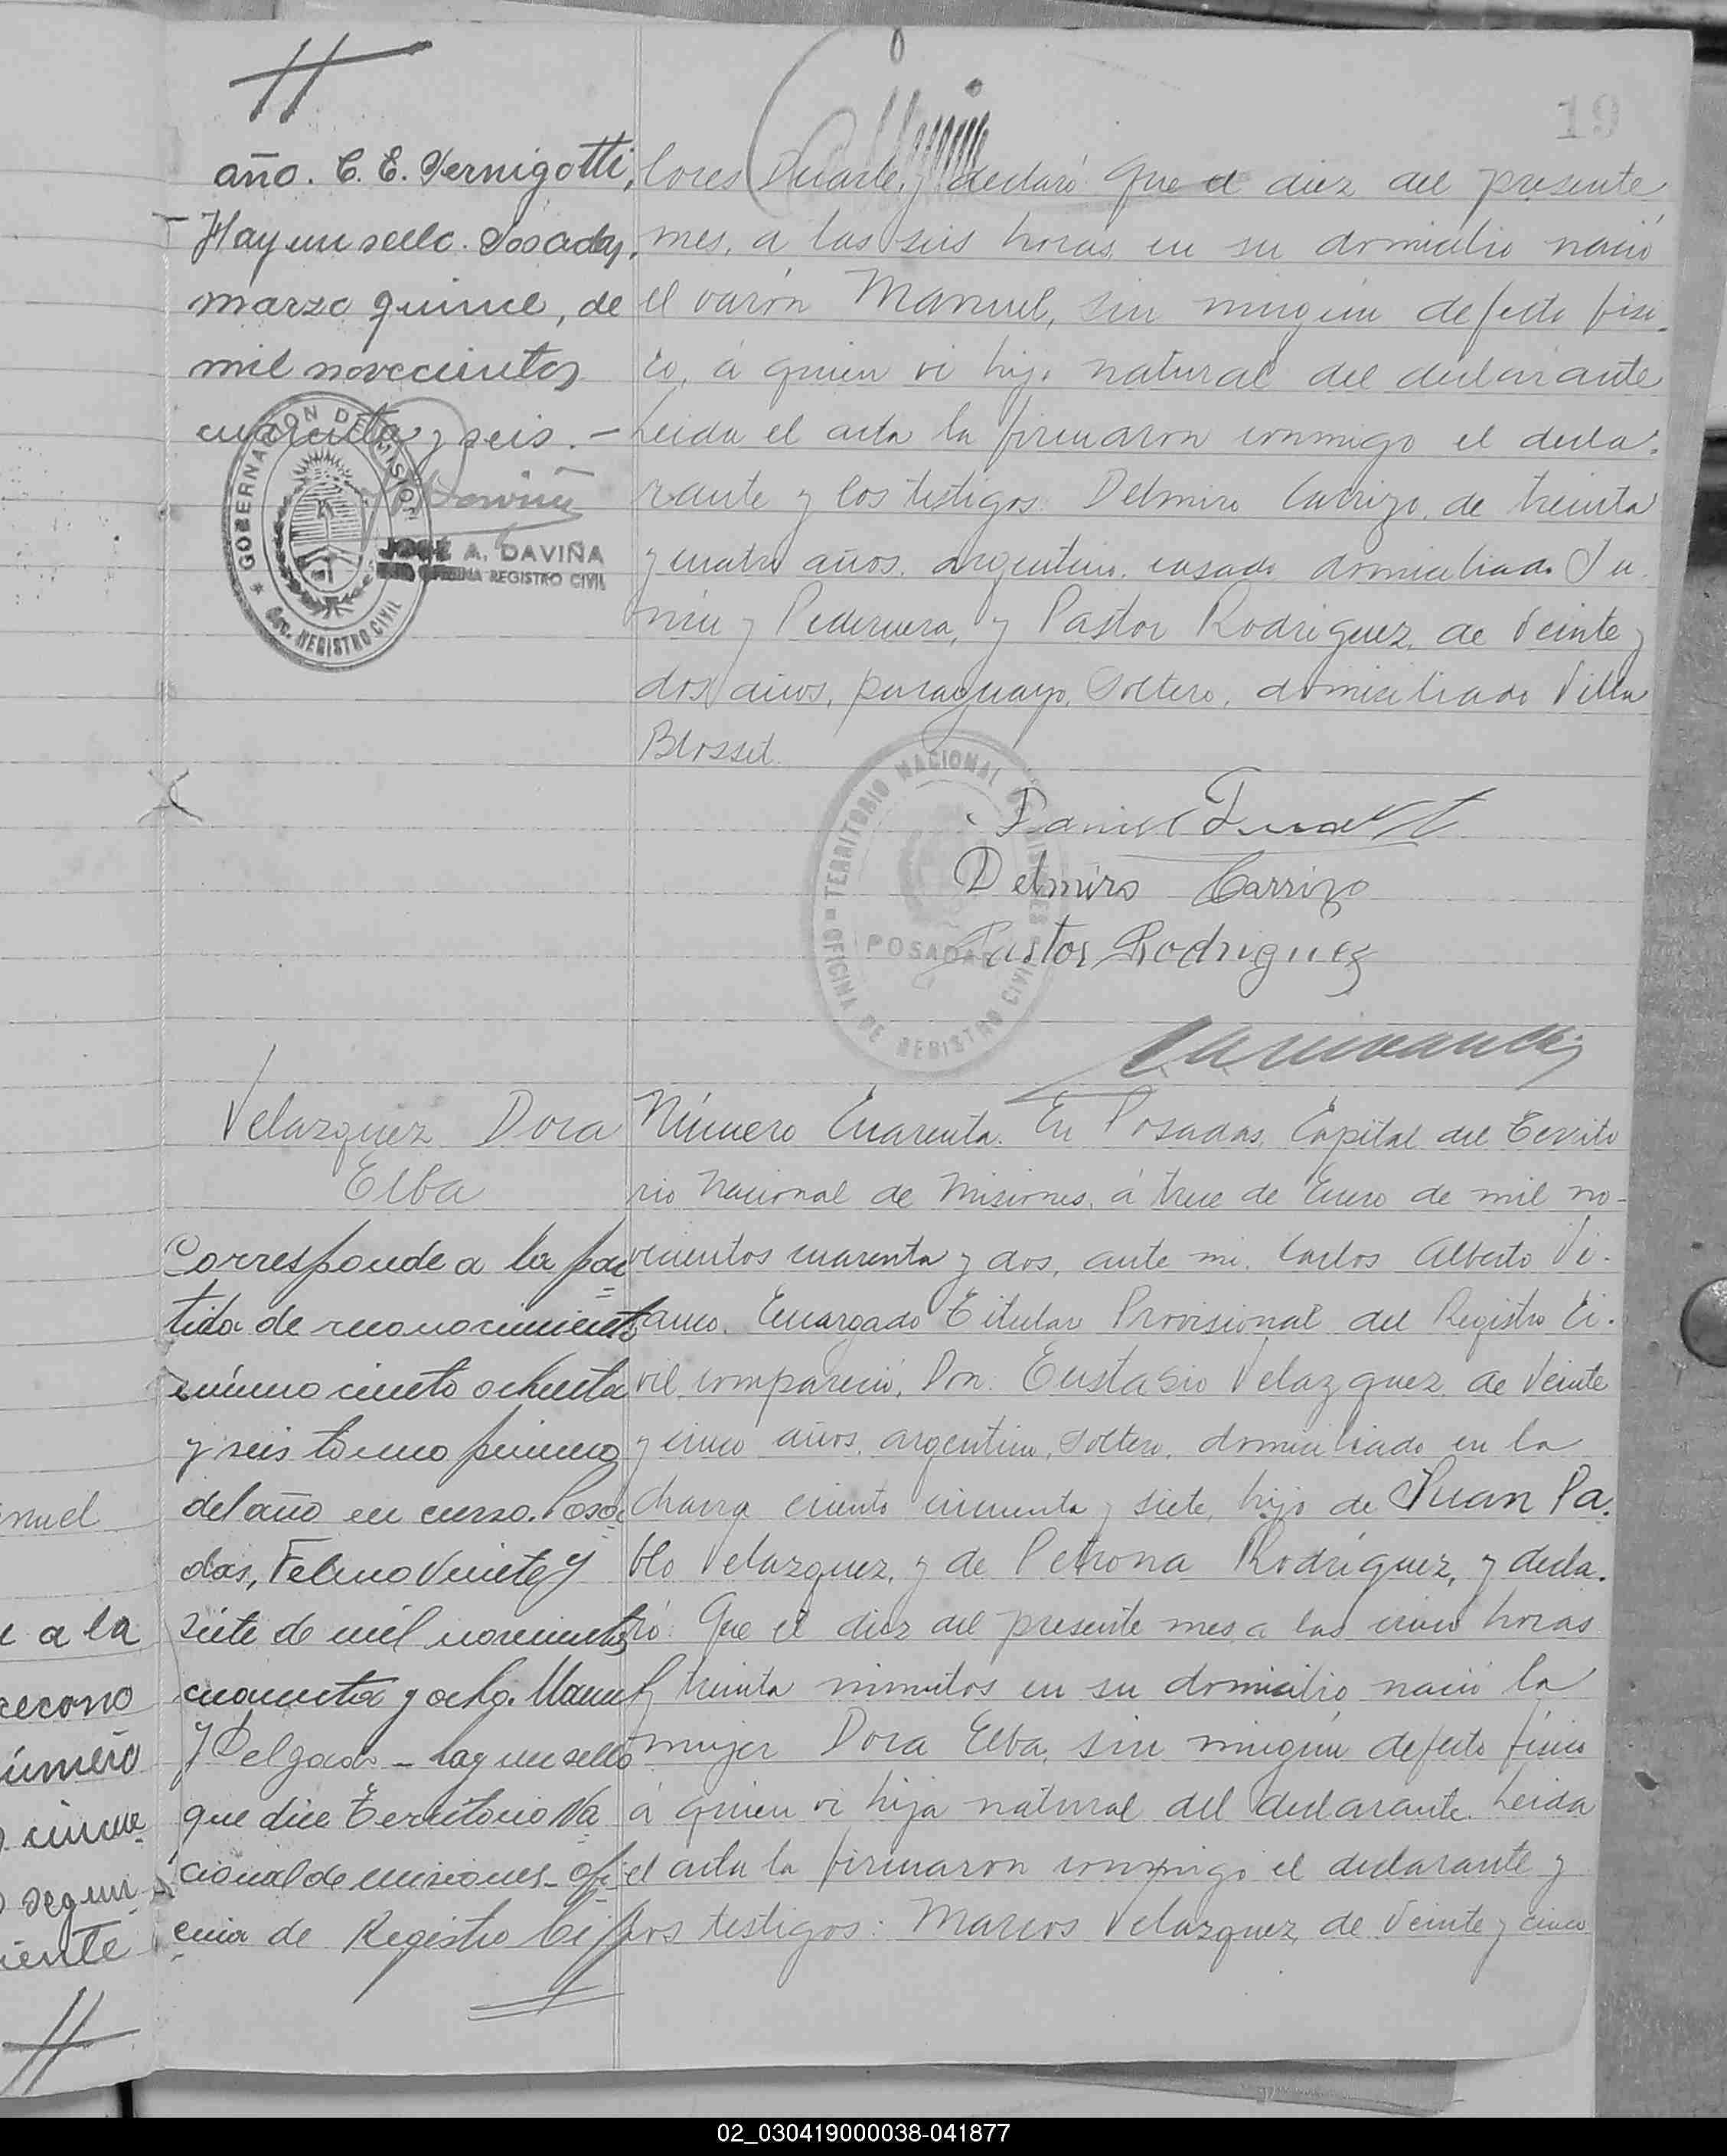 19
año. C. E. Vernigotti,
Hay un sello. Posadas,
marzo quince, de
mil novecientos
cuarenta y seis. -
GOBERNACION DE MISIONES
Sec. REGISTRO CIVIL
JOSÉ A. DAVIÑA
OFICINA REGISTRO CIVIL
lores Duarte, y declaró: Que el diez del presente
mes, a las seis horas, en su domicilio nació
el varón Manuel, sin ningun defecto fisi-
co, á quien vi hijo natural del declarante
Leida el acta la firmaron conmigo el decla-
rante y los testigos: Delmiro Carrizo, de treinta
y cuatro años, argentino, casado domiciliado Ju-
nin y Pedernera, y Pastor Rodriguez, de Veinte y
dos años, paraguayo, Soltero, domiciliado Villa
Blosset.
TERRITORIO NACIONAL DE MISIONES
POSADAS
OFICINA DE REGISTRO CIVIL
Delmiro Carrizo
Pastor Rodriguez
Velazquez Dora
Elba
Corresponde a la par
tida de reconocimiento
número ciento ochenta
y seis tomo primero
del año en curso. Posa
das, Febrero Veinte y
siete de mil novecientos
cuarenta y ocho. Manuel
J Delgado - hay un sello
que dice Territorio Na
cional de misiones - ofi
cina de Registro Ci
Número Cuarenta. En Posadas, Capital del Territo
rio Nacional de Misiones, á trece de Enero de mil no-
vecientos cuarenta y dos, ante mi, Carlos Alberto Vi-
vanco, Encargado Titular Provisional del Registro Ci-
vil, compareció, Don: Eustasio Velazquez, de Veinte
y cinco años, argentino, Soltero, domiciliado en la
chacra ciento cincuenta y siete, hijo de Juan Pa-
blo Velazquez, y de Petrona Rodriguez, y decla-
ró: Que el diez del presente mes a las cinco horas
y treinta minutos en su domicilio nació la
mujer Dora Elba, sin ningún defecto fisico
á quien vi hija natural del declarante. Leida
el acta la firmaron conmigo el declarante y
los testigos: Marcos Velazquez, de Veinte y cinco
nuel
e a la
recono
úmero
cincue
segun
iente
02_030419000038-041877